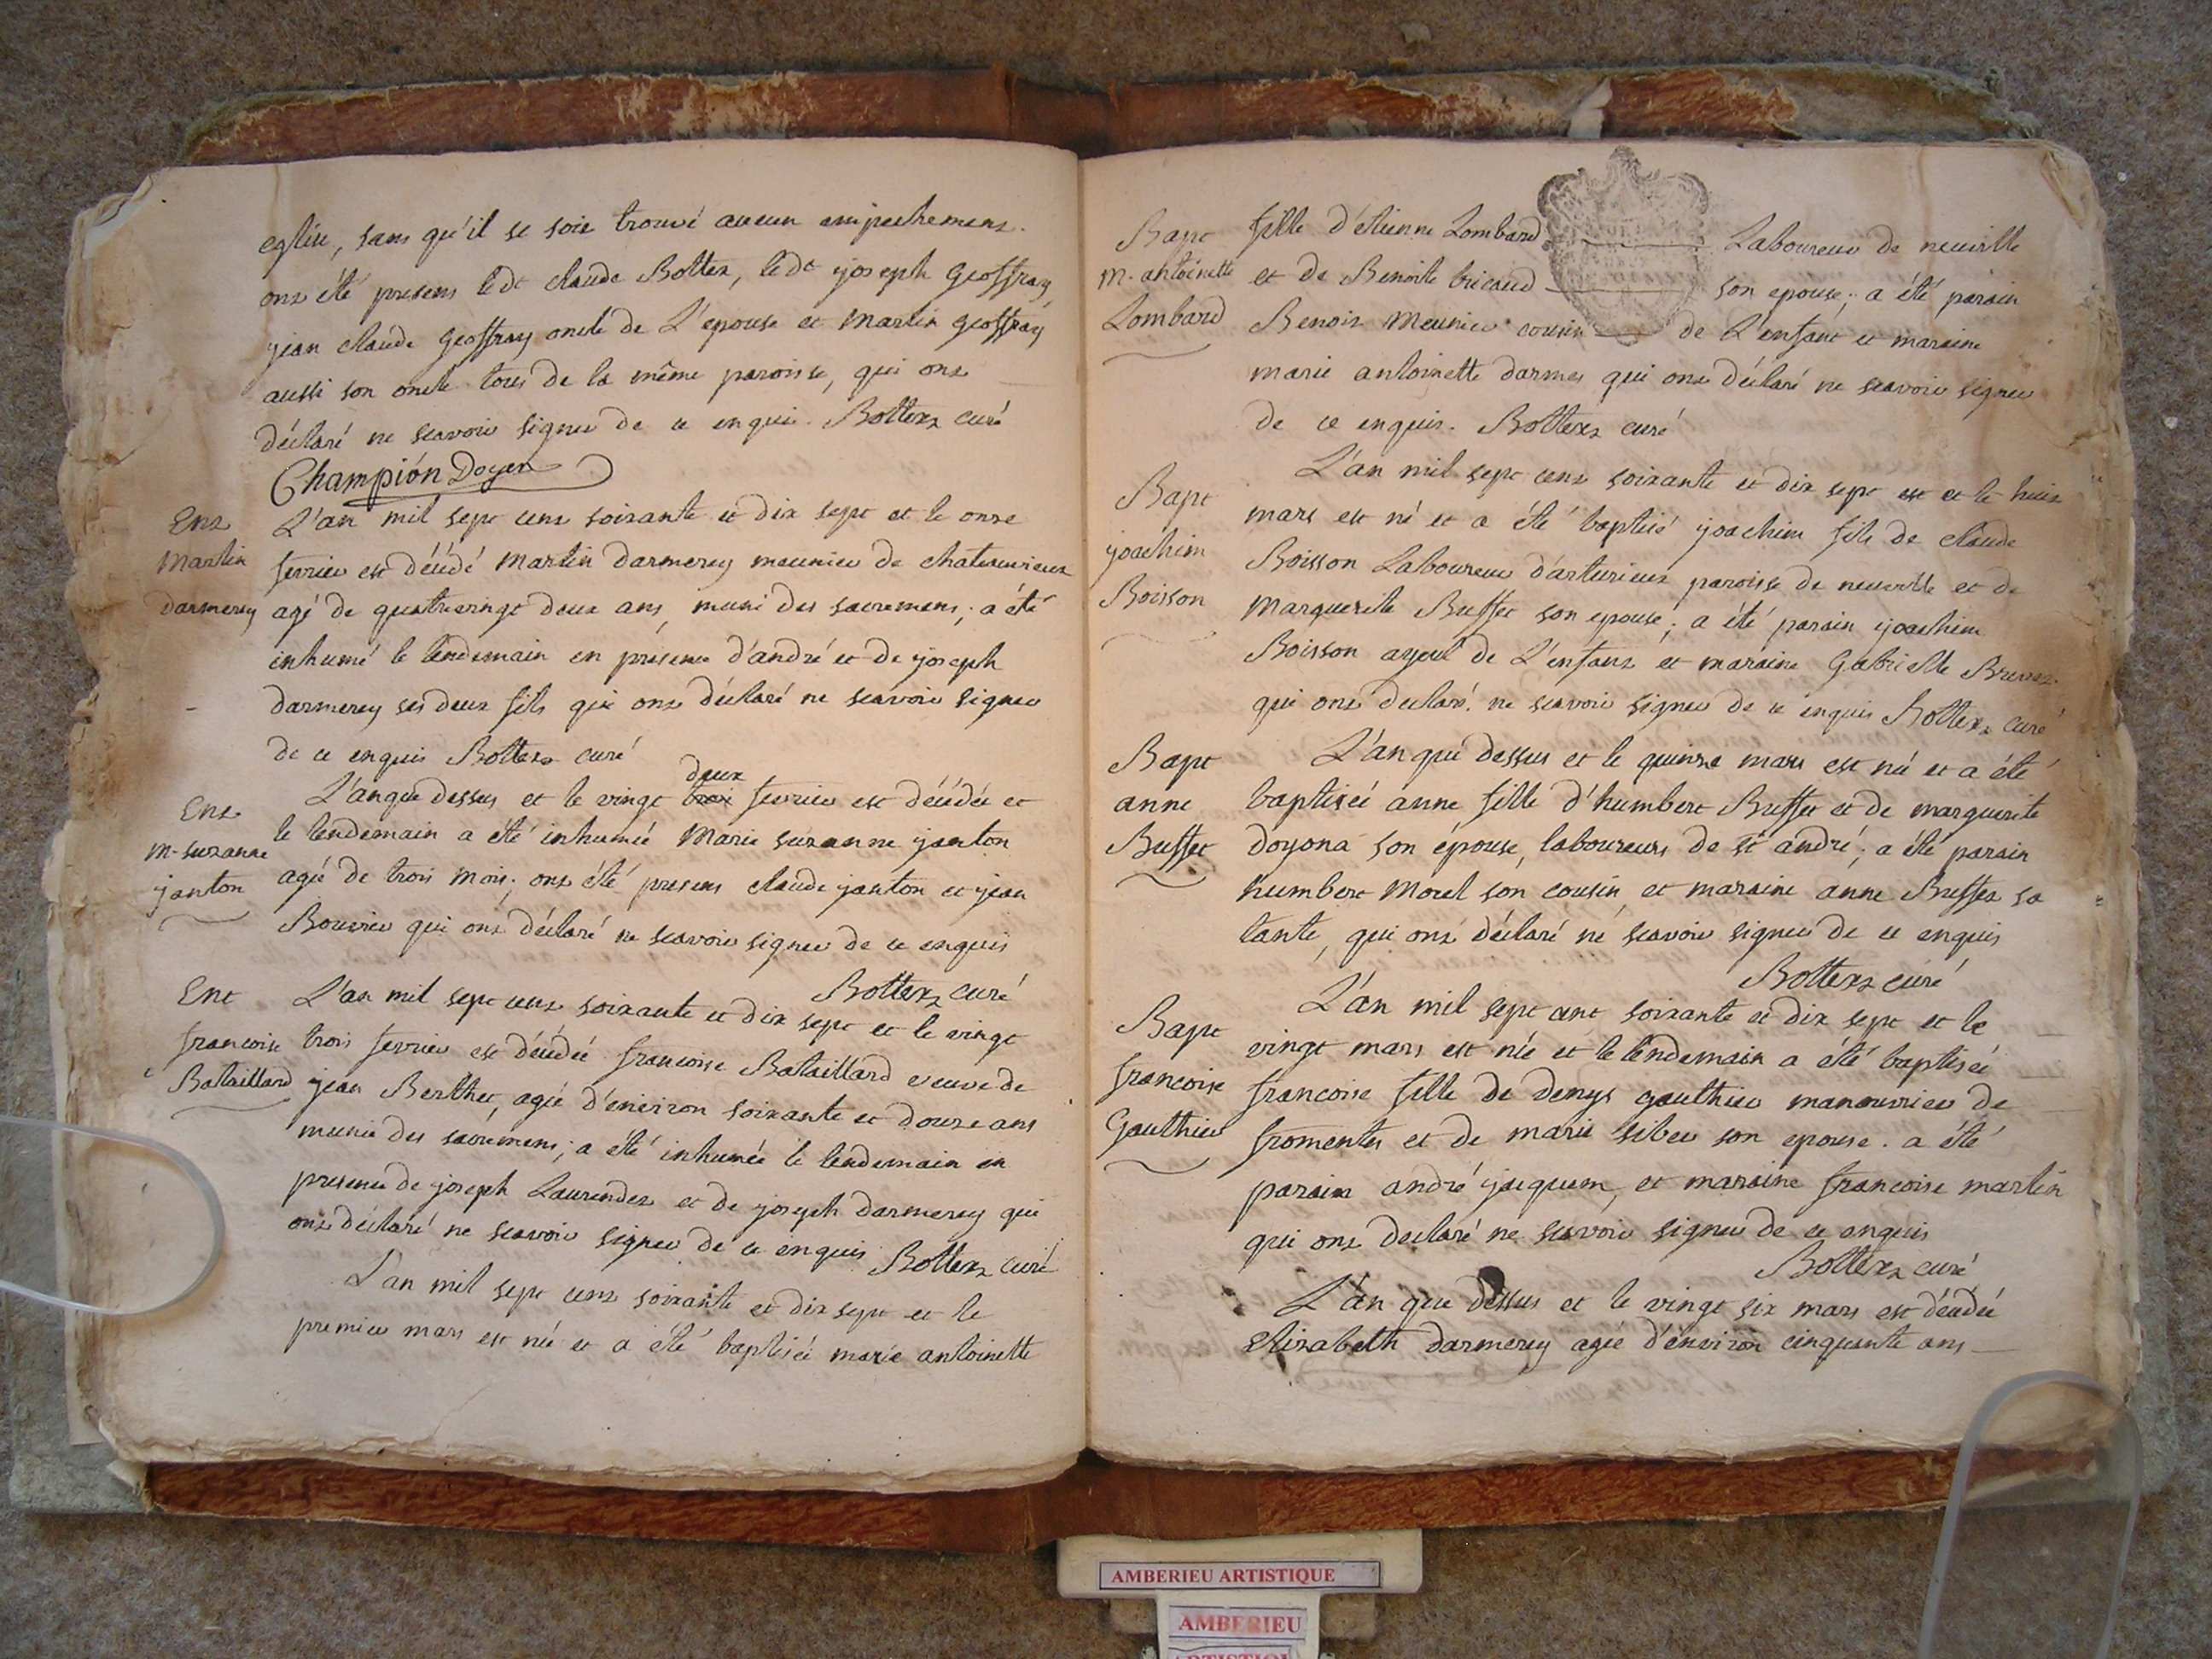 eglise, sans qu'il se soit trouvé aucun empechement.
ont été presens led^t claude Bottex, led^t joseph Geoffray,
jean claude Geoffray oncle de L'epouse et Martin Geoffray
aussi son oncle tous de la même paroisse, qui ont
déclaré ne scavoir signer de ce enquis. Bottex curé
Champion Doyen
Ent
Martin
darmerey
L'an mil sept cent soixante et dix sept et le onze
fevrier est décédé Martin darmerey meunier de chateauvieux
agé de quatrevingt deux ans, muni des sacremens; a été
inhumé le lendemain en présence d'andré et de joseph
darmerey ses deux fils qui ont déclaré ne scavoir signer
de ce enquis Bottex curé
Ent
m. suzanne
janton
deux
L'an que dessus et le vingt trois fevrier est décédée et
le lendemain a été inhumée Marie suzanne janton
agée de trois mois; ont été presens claude janton et jean
Bouvier qui ont déclaré ne scavoir signer de ce enquis
Bottex curé
Ent
francoise
Bataillard
L'an mil sept cent soixante et dix sept et le vingt
trois fevrier est décédée francoise Bataillard veuve de
jean Berthet, agée d'environ soixante et douze ans
munie des sacremens; a été inhumée le lendemain en
presence de joseph Laurendet et de joseph darmerey qui
ont déclaré ne scavoir signer de ce enquis Bottex curé
L'an mil sept cent soixante et dix sept et le
premier mars est née et a été baptisée marie antoinette
Bapt
m. antoinette
Lombard
fille d'étienne Lombard Laboureur de neuville
et de Benoite bricaud son epouse; a été parain
Benoit Meunier cousin de L'enfant et maraine
marie antoinette darmes qui ont déclaré ne scavoir signer
de ce enquis. Bottex curé
Bapt
joachim
Boisson
L'an mil sept cent soixante et dix sept est et le huit
mars est né et a été baptisé joachim fils de claude
Boisson Laboureur d'arturieux paroisse de neuville et de
Marguerite Buffet son epouse; a été parain joachim
Boisson ayeul de L'enfant et maraine Gabrielle
qui ont déclaré ne scavoir signer de ce enquis Bottex curé
Bapt
anne
Buffet
L'an que dessus et le quinze mars est née et a été
baptisée anne fille d'humbert Buffet et de marguerite
doyona son épouse, laboureurs de s^t andré; a été parain
humbert Morel son cousin, et maraine anne Buffet sa
tante, qui ont déclaré ne scavoir signer de ce enquis
Bottex curé
Bapt
francoise
Gauthier
L'an mil sept cent soixante et dix sept et le
vingt mars est née et le lendemain a été baptisée
francoise fille de denys gauthier manouvrier de
fromentes et de marie siber son epouse. a été
parain andré jacquem, et maraine francoise martin
qui ont declaré ne scavoir signer de ce enquis
Bottex curé
L'an que dessus et le vingt six mars est décédée
Elizabeth darmerey agée d'environ cinquante ans
AMBERIEU ARTISTIQUE
AMBERIEU
ARTISTIQUE